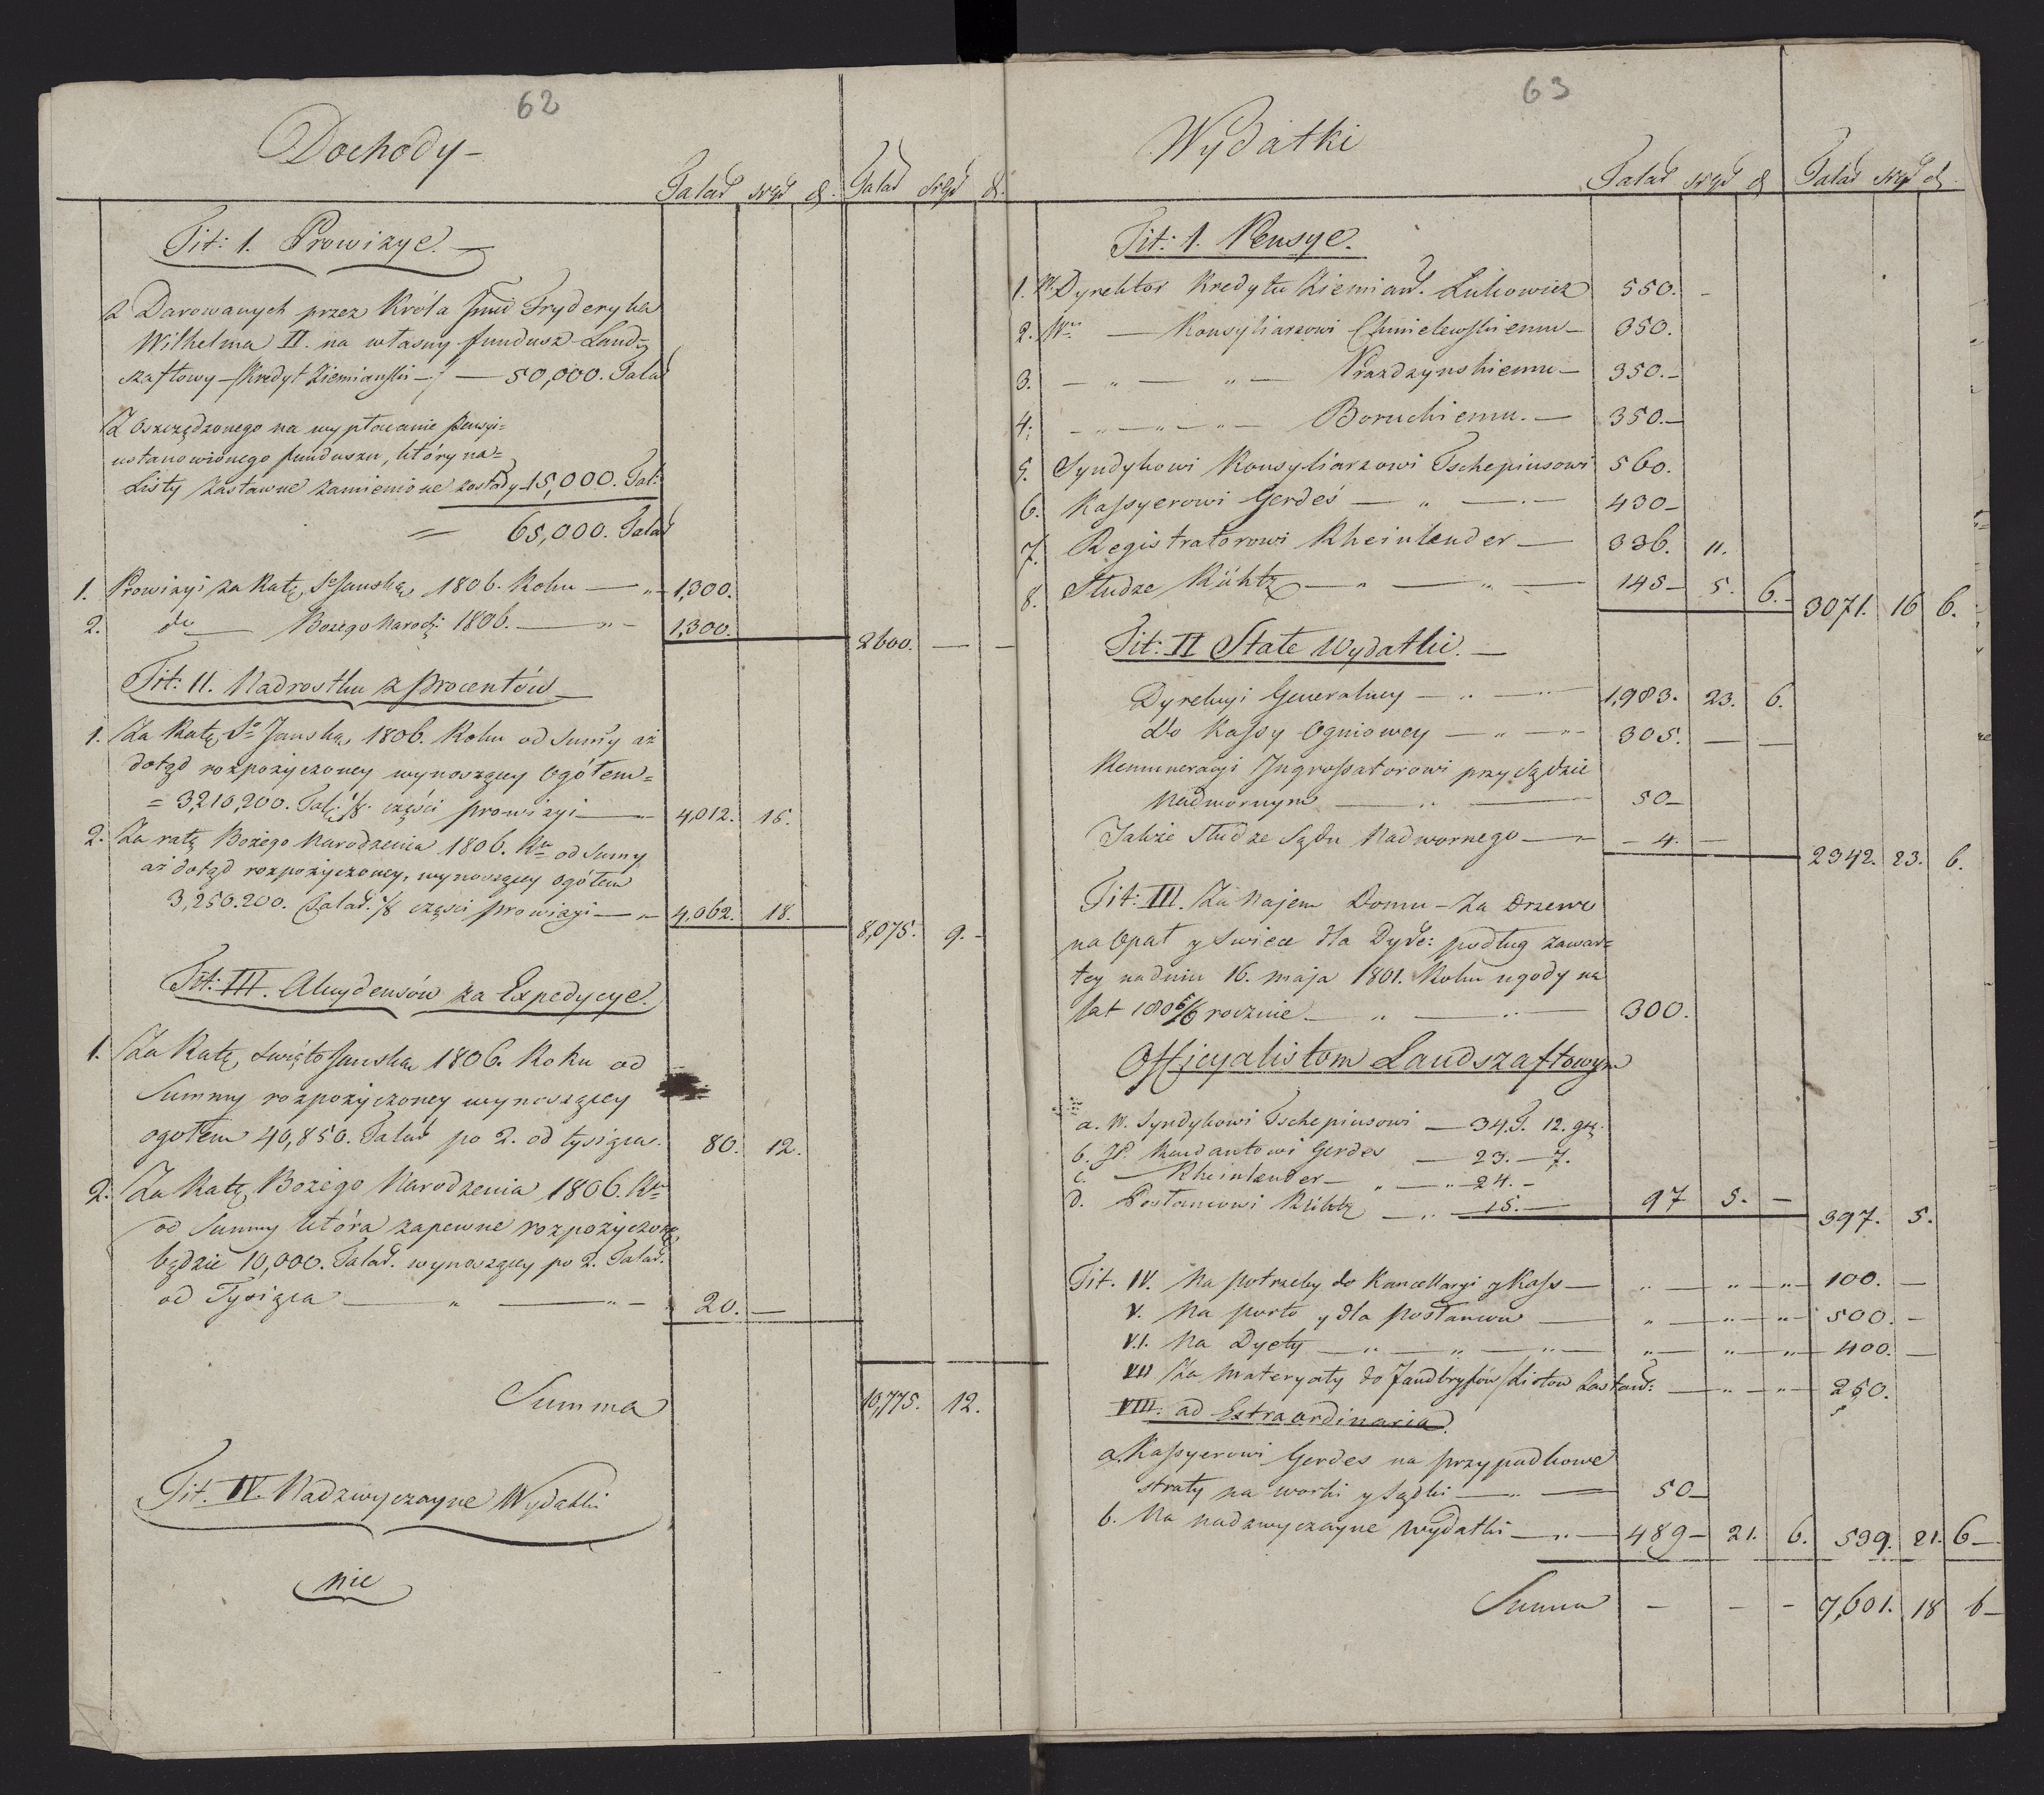 62
Dochody
Talar srgr d. Talar srgr d.
Tit: 1. Prowizye.
Z Darowanych przez Króla Fryderyka
Wilhelma II. na własny fundusz Land=
szaftowy Kredyt Ziemianski 50,000. Talar
Z Oszczędzonego na wypłacanie pensyi=
ustanowionego funduszu, który na=
Listy zastawne zamienione zostały 15,000. Tal:
= 65,000. Talar
1. Prowizyi za Ratę Sо Janską 1806. Roku — 1,300.
2. do — Bożego Narodz: 1806. — 1,300. 2600. — —
Tit: II. Nadrostku z procentów
1. Za Ratę So Janską 1806. Roku od Sumy aż
dotąd rozpożyczoney wynoszącey Ogółem=
= 3,210,200. Tal: 1/8. części prowizyi — 4,012. 15.
2. Za ratę Bożego Narodzenia 1806. Ru od Sumy
aż dotąd rozpożyczoney, wynoszącey ogółem
3,250.200. Talar. 1/8 części prowizyi — 4,062. 18. 8,075. 9. -
Tit: III. Akcydensów za Expedycye.
1. Za Ratę Święto Janską 1806. Roku od
Summy rozpożyczoney wynoszącey
ogółem 40,850. Talar po 2. od tysiąca. 80. 12.
2. Za Ratę Bożego Narodzenia 1806. Ru
od Summy która zapewne rozpożyczoną
będzie 10,000. Talar. wynoszącey po 2. Talar.
od Tysiąca — 20. —
Summa 10,775. 12.
Tit. IV. Nadzwyczayne Wydatki
nic
63
Wydatki
Talar srgr d Talar srgr d.
Tit: 1. Pensye.
1. W. Dyrektor Kredytu Ziemian. Lukowicz 550. -
2. Wu — Konsyliarzowi Chmielewskiemu — 350.
3. — " — " — Prazdzynskiemu — 350. —
4. — " — " — Boruckiemu. — 350. —
5. Syndykowi Konsyliarzowi Tschepiusowi 560.
6. Kassyerowi Gerdes — " — 430 —
7. Registratorowi Rheinlænder — 336. 11.
8. Słudze Kühtz — " — " — 145 — 5. 6. — 3071. 16 6.
Tit: II Stałe Wydatki. —
Dyrekcyi Generalney — 1,983. 23. 6.
Do Kassy Ogniowey — " — 305. — —
Remuneracyi Ingrossatorowi przy Sądzie
Nadwornym — 50 —
Także Słudze Sądu Nadwornego — — 4. — 2342. 23. 6.
Tit: III. Za Najem Domu — Za Drzewo
na Opał y Swiece dla Dyre: podług zawar=
tey na dniu 16. maja 1801. Roku ugody na
lat 180 5/6 rocznie — " — 300.
Officyalistom Landszaftowym
a. W. Syndykowi Tschepiusowi — 34. T. 12. gr.
b. JP. Rendantowi Gerdes — 23. — 7.
c. — Rheinlænder — " — " 24. —
d. Posłancowi Kühtz — " — 15. — 97 5. — 397. 5.
Tit. IV. Na potrzeby do Kancellaryi y Kass — " — " — " — 100. —
V. Na porto y dla posłanców — " — " — " — 500. —
V.I. Na Dyety — " — " — " — " — " — " — 400. —
VII Za materyały do Fandbryfów / Listow Zastaw: — " — " — 250.
VIII: ad Extraordinaria.
a. Kassyerowi Gerdes na przypadkowe
straty na worki y — " — 50 —
b. Na nadzwyczayne wydatki — " — 489 — 21. 6. 539. 21. 6 —
Summa — — — 7,601. 18 6 —